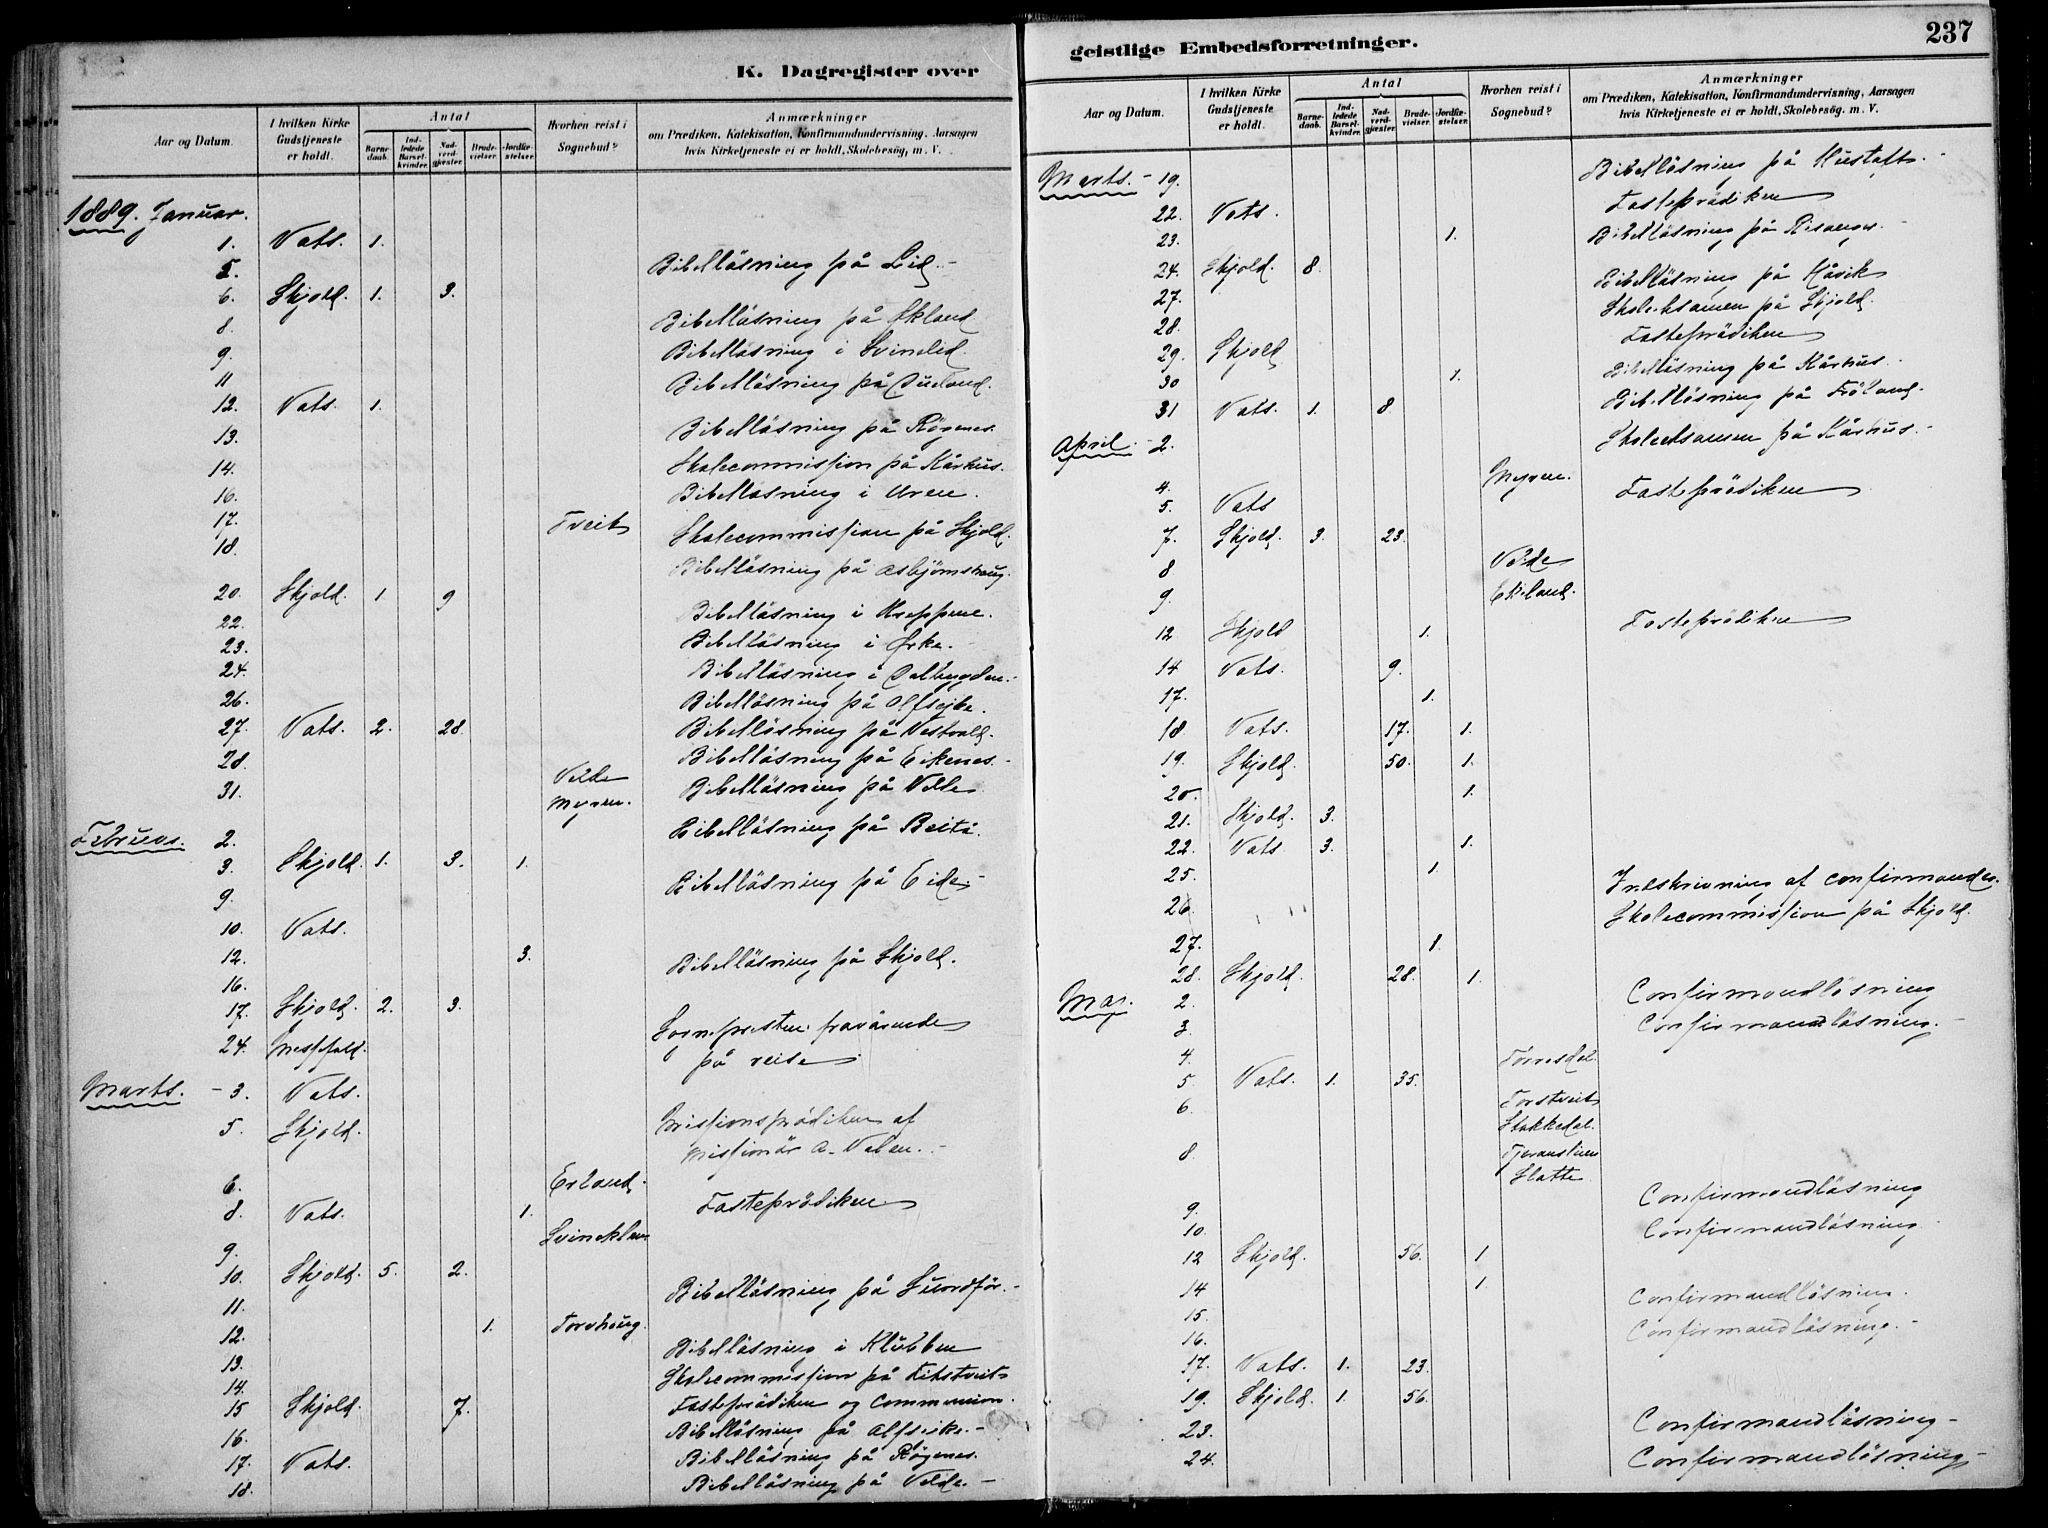 K. Dagregister over
Aar og Datum.
I hvilken Kirke Gudstjeneste er holdt.
Antal
Barnedaab.
Indledede Barselkvinder.
Nadverdgjæster.
Brudevielser.
Jordfæstelser.
Hvorhen reist i Sognebud?
Anmærkninger
om Prædiken, Katekisation, Konfirmandundervisning, Aarsagen
hvis Kirketjeneste ei er holdt, Skolebesøg, m. V.
1889. Januar.
1. Vats. 1.
5. Bibellásning på Lid.
6. Skjold. 1. 3.
8. Bibellásning på Økland
9. Bibellásning i Svinelid.
11 Bibellásning på
12. Vats. 1.
13. Bibellásning på Røgenes.
14. Skolecommission på Kårhus.
16. Bibellásning i Uren.
17. Tveit
18. Skolecommission på Skjold.
Bibellásning på Asbjørnshaug.
20. Skjold. 1 9
22. Bibellásning i Kreppene.
23. Bibellásning i Ørke.
24. Bibellásning i Dalbygden.
26. Bibellásning på
27. Vats. 2. 28. Bibellásning på Vestvold.
28. Bibellásning på Eikenes.
31. Velde Myren. Bibellásning på Velde
Februar. 2. Bibellásning på
3. Skjold. 1. 3. 1.
9. Bibellásning på Eide.
10. Vats.
12. 3. Bibellásning på Skjold.
16.
17. Skjold. 2. 3.
24. Sognepresten fravärende
på reise
Marts. 3. Vats.
5. Skjold. Missionsprädiken af
Missionär A. Valen.
6. Erland.
8. Vats. 1. Fasteprädiken
9.
10. Skjold. 5. 2.
11. Bibellásning på
12. 1. Torshaug.
13. Bibellásning i Klubben
14. Skolecommission på
15 Skjold. 7. Fasteprädiken og Communion.
16. Bibellásning på
17. Vats. Bibellásning på Røgenes.
18. Bibellásning på Velde.
geistlige Embedsforretninger.
237
Aar og Datum.
I hvilken Kirke Gudstjeneste er holdt.
Antal
Barnedaab.
Indledede Barselkvinder.
Nadverdgjæster.
Brudevielser.
Jordfæstelser.
Hvorhen reist i Sognebud?
Anmærkninger
om Prædiken, Katekisation, Konfirmandundervisning, Aarsagen
hvis Kirketjeneste ei er holdt, Skolebesøg. m. V.
Marts. 19. Bibellásning på
22. Vats. Fasteprädiken
23. 1. Bibellásning på Risanger.
24. Skjold. 8.
27. Bibellásning på
28. Skoleeksamen på Skjold.
29. Skjold Fasteprädiken
30 1. Bibellásning på Kårhus.
31 Vats. 1. 8. Bibellásning på Frøland.
April. 2. Skoleeksamen på Kårhus.
4. Myren.
5. Vats Fasteprädiken
7. Skjold. 3. 23.
8 Velde
9. Eikeland.
12 Skjold 1. Fasteprädiken
14 Vats. 9.
17. 1.
18 Vats. 17. 1.
19. Skjold. 50. 1.
20. 1.
21. Skjold. 3.
22. Vats 3. 1.
25. 1 Indskrivning af confirmander.
26. Skolecommission på Skjold.
27. 1.
28. Skjold. 28. 1.
Mai. 2. Confirmandläsning
3. Confirmandläsning.
4. Tornesdal.
5. Vats. 1. 35.
6. Torstveit
Stakkedal.
8.
Slatte
9. Confirmandläsning
10. Confirmandläsning
12 Skjold. 56. 1
14 1
15. Confirmandläsning.
16. Confirmandläsning.
17. Vats. 1. 23.
19. Skjold. 1. 56.
23. Confirmandläsning
24. Confirmandläsning